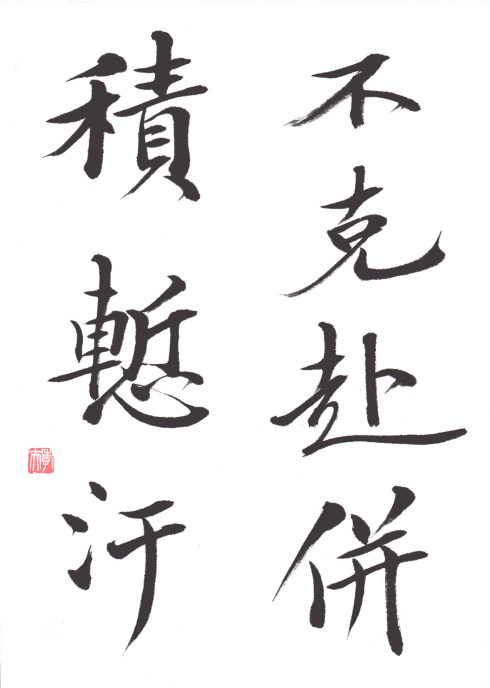 不克赴併
積慙汗